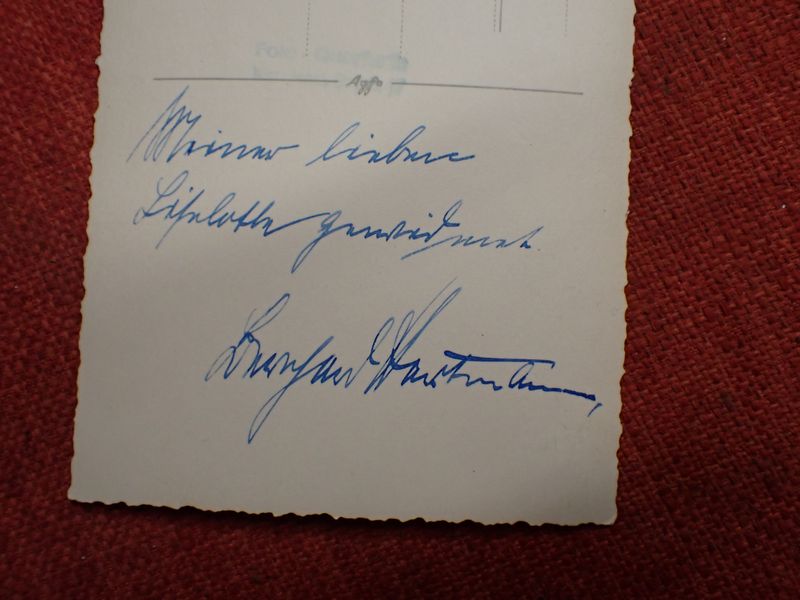 Foto
Agfa
Meiner lieben
Liselotte gewidmet.
Bernhard Hartmann,